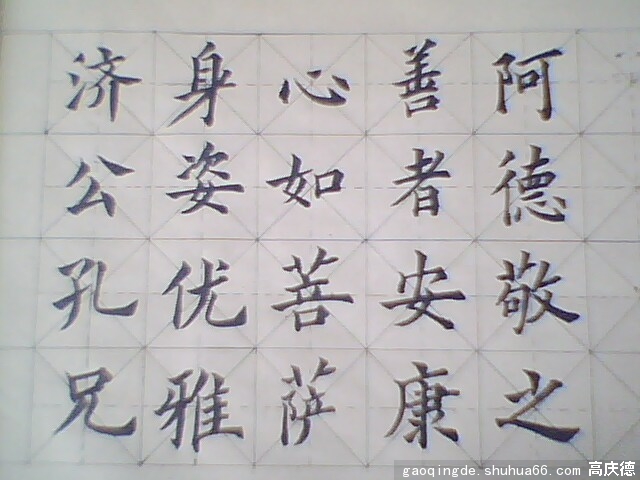 阿德敬之
善者安康
心如菩萨
身姿优雅
济公孔兄
gaoqingde.shuhua66.com 高庆德